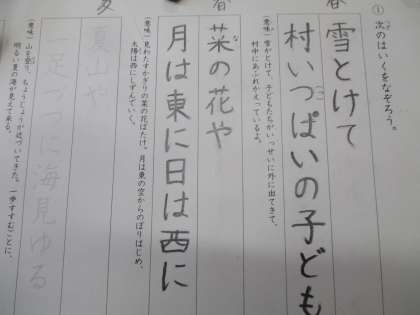 ① 次のはいくをなぞろう。
春
雪とけて
村いっぱいの子ども
(意味) 雪がとけて、子どもたちがいっせいに外に出てきて、
村中にあふれかえっているよ。
春
菜の花や
月は東に日は西に
(意味) 見わたすかぎりの菜の花ばたけ。月は東の空からのぼりはじめ、
太陽は西にしずんでいく。
夏
夏山や
一足 に海見ゆる
(意味) 山を登り、ちょうじょうが近づいてきた。一歩すすむごとに、
明るい夏の海が見えて来る。